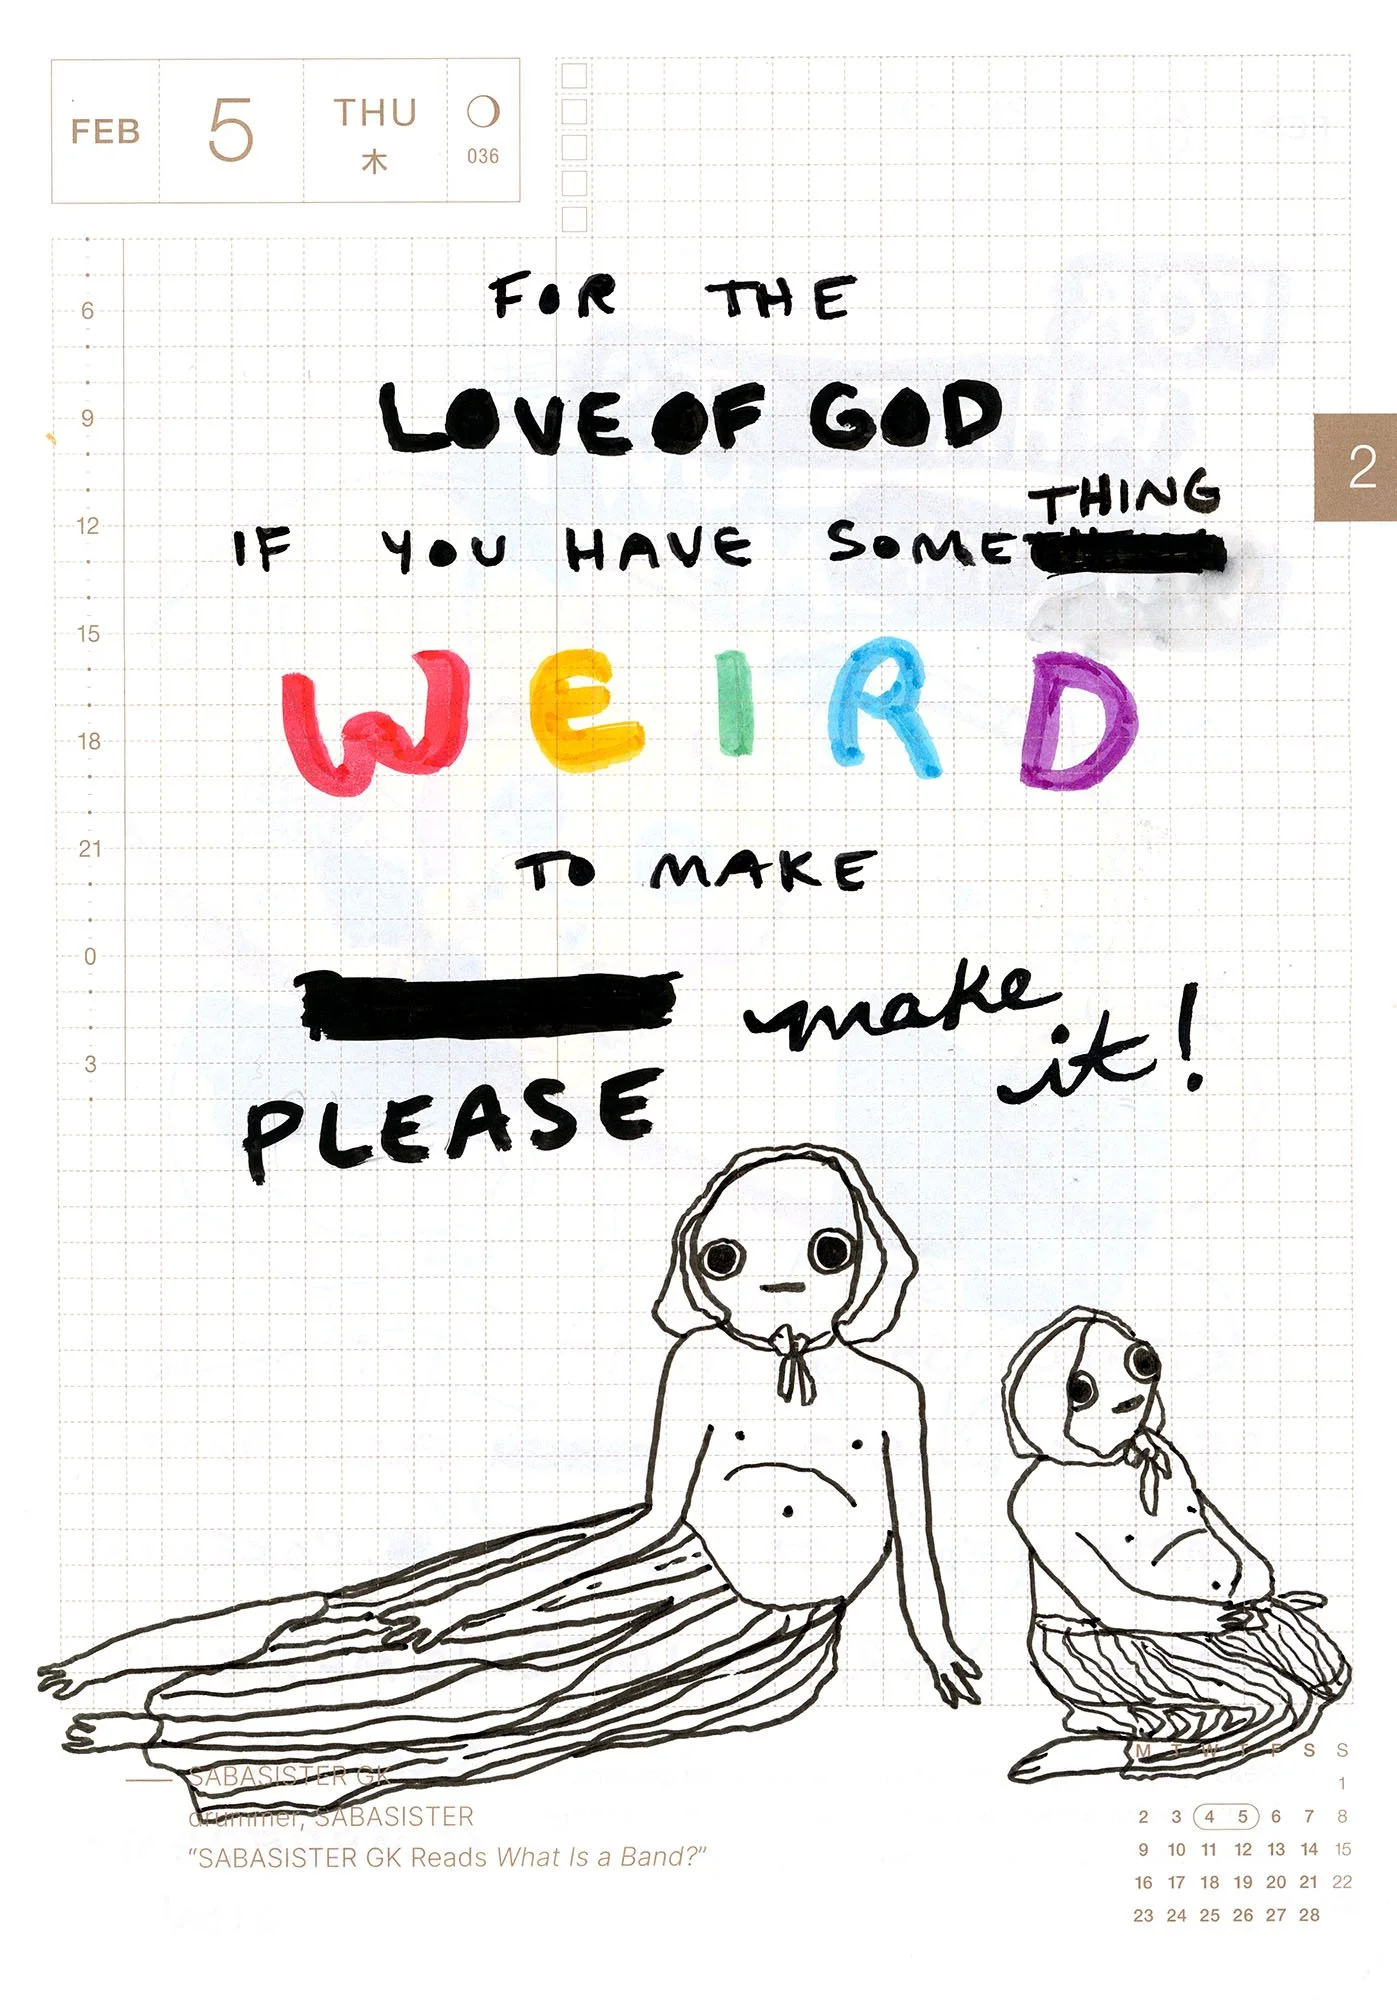 FEB 5 THU
木 036
2
FOR THE
6
LOVE OF GOD
9
THING
IF YOU HAVE SOME
12
WEIRD
15
18
TO MAKE
21
0
make
it!
3
PLEASE
SABASISTER GK
drummer, SABASISTER
“SABASISTER GK Reads What Is a Band?”
M T W T F S S
1
2 3 4 5 6 7 8
9 10 11 12 13 14 15
16 17 18 19 20 21 22
23 24 25 26 27 28